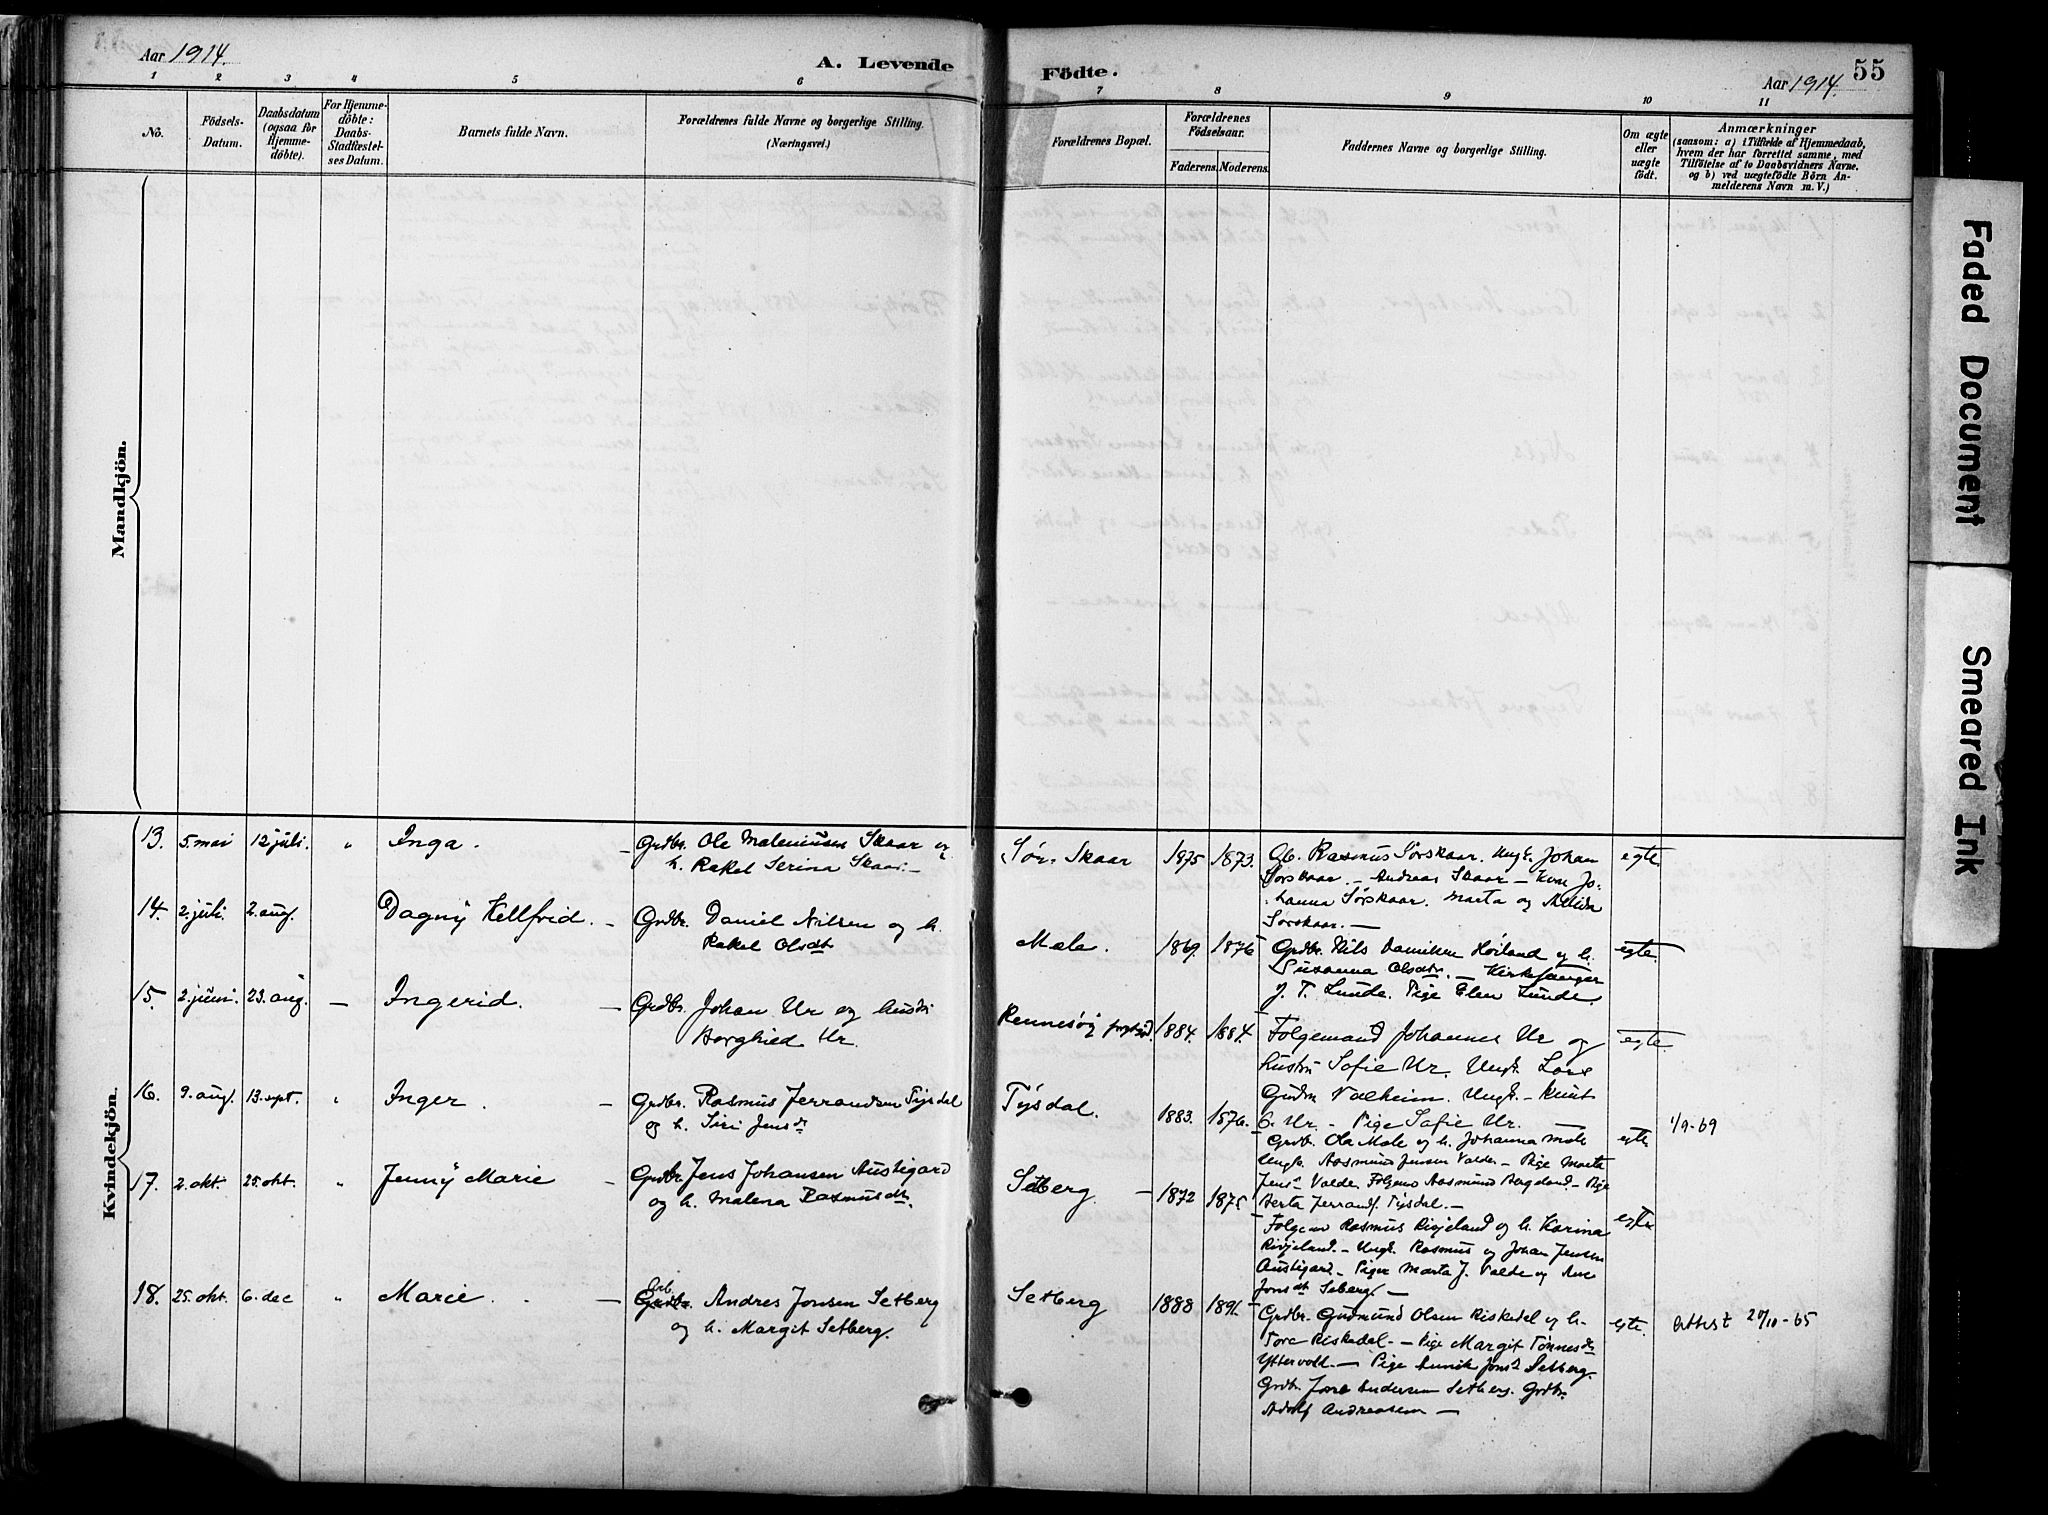 Aar 1914.
A. Levende
Födte.
Aar 1914.
55
1 2 3 4 5 6 7 8 9 10 11
No.
Födsels-Datum.
Daabsdatum (ogsaa for Hjemme-döbte).
For Hjemme-döbte: Daabs-Stadfæstel-ses Datum.
Barnets fulde Navn.
Forældrenes fulde Navne og borgerlige Stilling. (Næringsvei.)
Forældrenes Bopæl.
Forældrenes Födselsaar.
Faderens. Moderens.
Faddernes Navne og borgerlige Stilling.
Om ægte eller uægte födt.
Anmærkninger
(saasom: a) i Tilfælde af Hjemmedaab, hvem der har forrettet samme, med Tilföielse af to Daabsvidners Navne, og b) ved uægtefödte Börn An-melderens Navn m. V.)
Mandkjön.
Kvindekjön.
13. 5. mai 12 juli. " Inga. — Grdbr. Ole Maleniusen Skaar og
h. Rakel Serina Skaar. —
Sør Skaar 1875 1873. Gb. Rasmus Sørskaar. Ungk. Johan
Sørskaar. — Andreas Skaar — Kone Jo-
hanna Sørskaar. Marta og
Sørskaar. —
egte
14. 2. juli. 2. aug. Dagny Hellfrid. — Grdbr. Daniel Nilsen og h.
Rakel Olsdt
Mæle. 1869. 1876 Grdbr. Nils Danielsen Høiland og h.
Susanna Olsdtr. — Kirkesanger
J. T. Lunde. Pige Elen Lunde.
egte.
15. 2. juni. 23. aug. — Ingerid. — Grdbr. Johan Ur og hustru
Borghild Ur.
Rennesøy 1884. 1884. Folgemand Johannes Ur og
hustru Sofie Ur. Ungk. Lars
Gudm Valheim. Ungk. — Knut
G. Ur. — Pige Sofie Ur. —
egte.
16. 9. aug. 13. sept. " Inger. — Grdbr. Rasmus Jerrandsen Tysdal
og h. Siri Jensdt
Tysdal. 1883. 1876. Grdbr. Ola Mæle og h. Johanna Mæle
Ungk. Aasmund Jensen Valde — Pige Marta
Jens. Valde. Folgem. Aasmund Bergeland. — Pige
Berta Jerrandsd. Tysdal. —
egte 1/9-69
17. 2. okt. 25. okt. " Jenny Marie — Grdbr. Jens Johansen Austigard
og h. Malena Rasmusdt.
Setberg — 1872 1875 Folgem Rasmus Rivjeland og h. Karina
Rivjeland. — Ungk. Rasmus og Johan Jensen
Austigard. — Piger Marta J. Valde og Ane
Jonsdt Seberg. —
egte
18. 25. okt. 6. dec " Marie. — Grdbr. Andres Jonsen Setberg
og h. Margit Setberg.
Setberg 1888 1891. Grdbr. Gudmund Olsen Riskedal og h.
Tora Riskedal. — Pige Margit Tønnesdt
Yttervoll. — Pige Jonsd Setberg.
Grdbr. Jone Andersen Setberg. Grdbr.
Adolf Andreassen —
egte. Attest 27/10-65
Faded Document
Smeared Ink